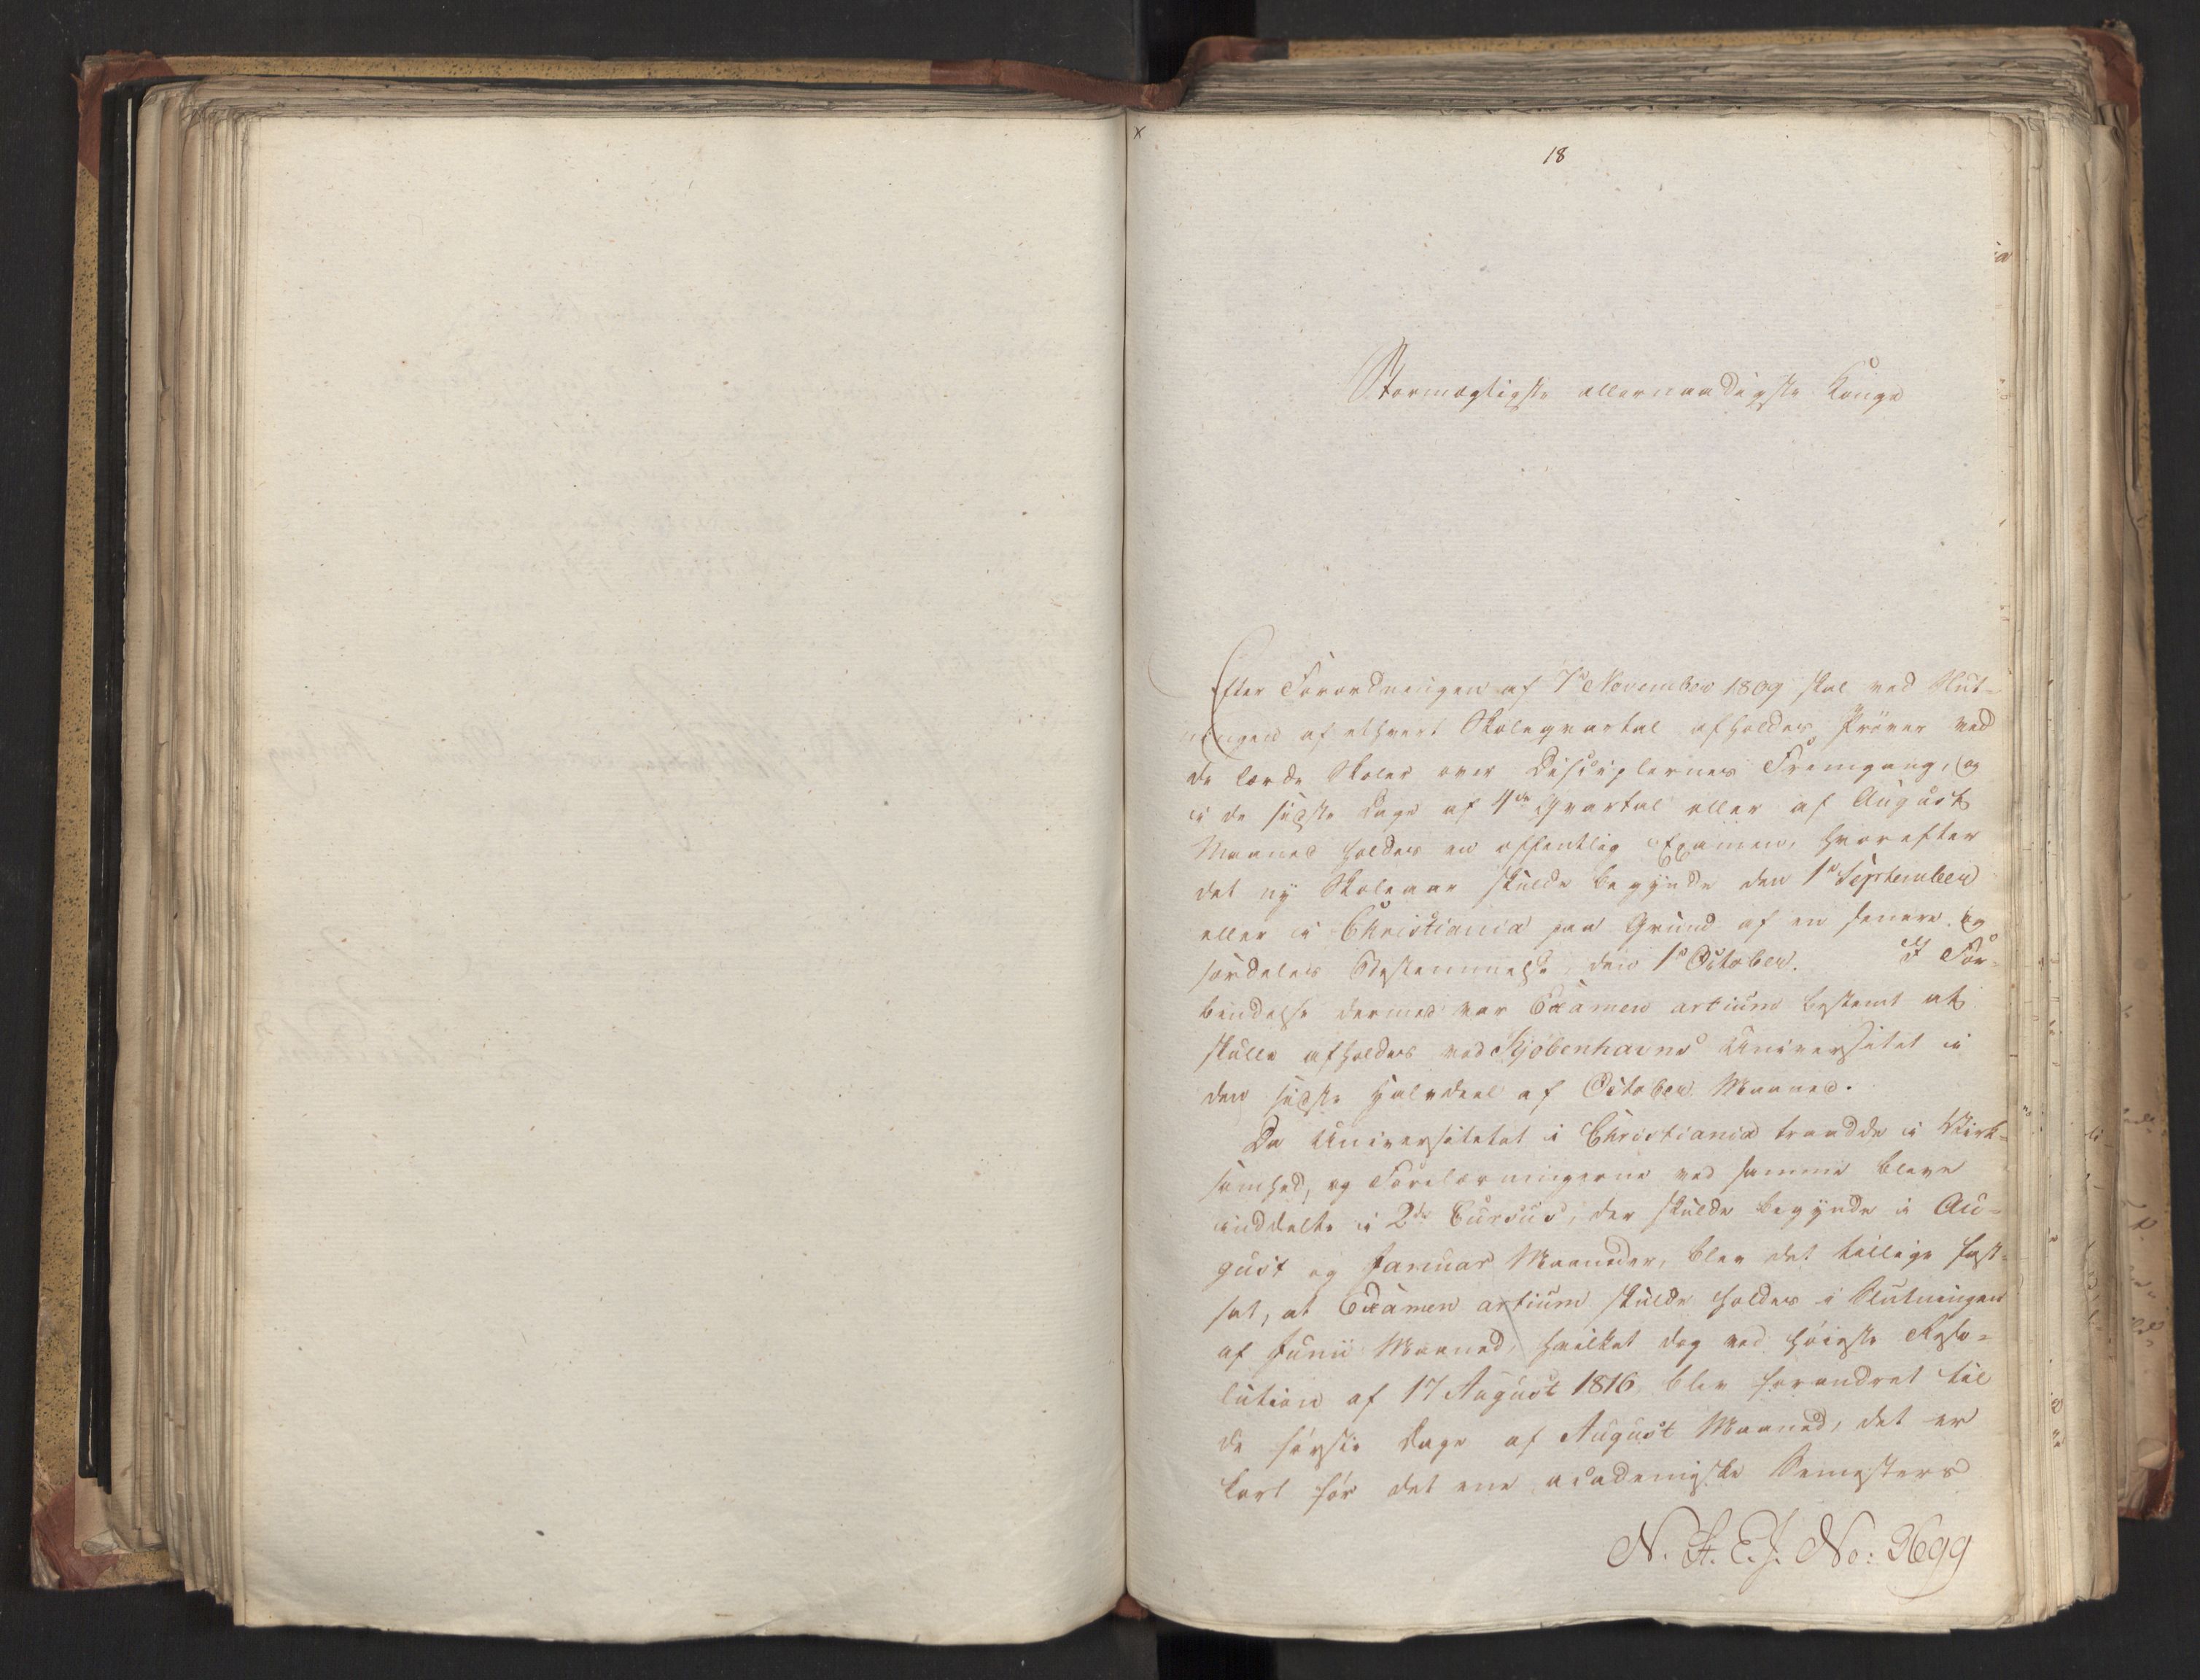 x
18
Stormægtigste allernaadigste Konge
Efter Forordningen af 7de November 1809 skal ved Slut-
ningen af ethvert Skoleqvartal afholdes Prøver ved
de lærde Skoler over Disciplernes Fremgang, og
i de sidste Dage af 4de Qvartal eller af August
Maaned holdes en offentlig Examen, hvorefter
det ny Skoleaar skulde begynde den 1e September
eller i Christiania paa Grund af en senere og
særdeles Bestemmelse, den 1e October. I For-
bindelse dermed var Examen artium bestemt at
skulle afholdes ved Kjøbenhavns Universitet i
den sidste Halvdeel af October Maaned.
Da Universitetet i Christiania traadde i Virk-
somhed, og Forelæsningerne ved samme bleve
inddelte i 2de Cursus, der skulde begynde i Au-
gust og Januar Maaneder, blev det tillige fast-
sat, at Examen artium skulde holdes i Slutningen
af Junii Maaned, hvilket dog ved høieste Reso-
lution af 17 August 1816 blev forandret til
de første Dage af August Maaned, det er
kort før det ene academiske Semesters
N. St. E. J. No: 3699